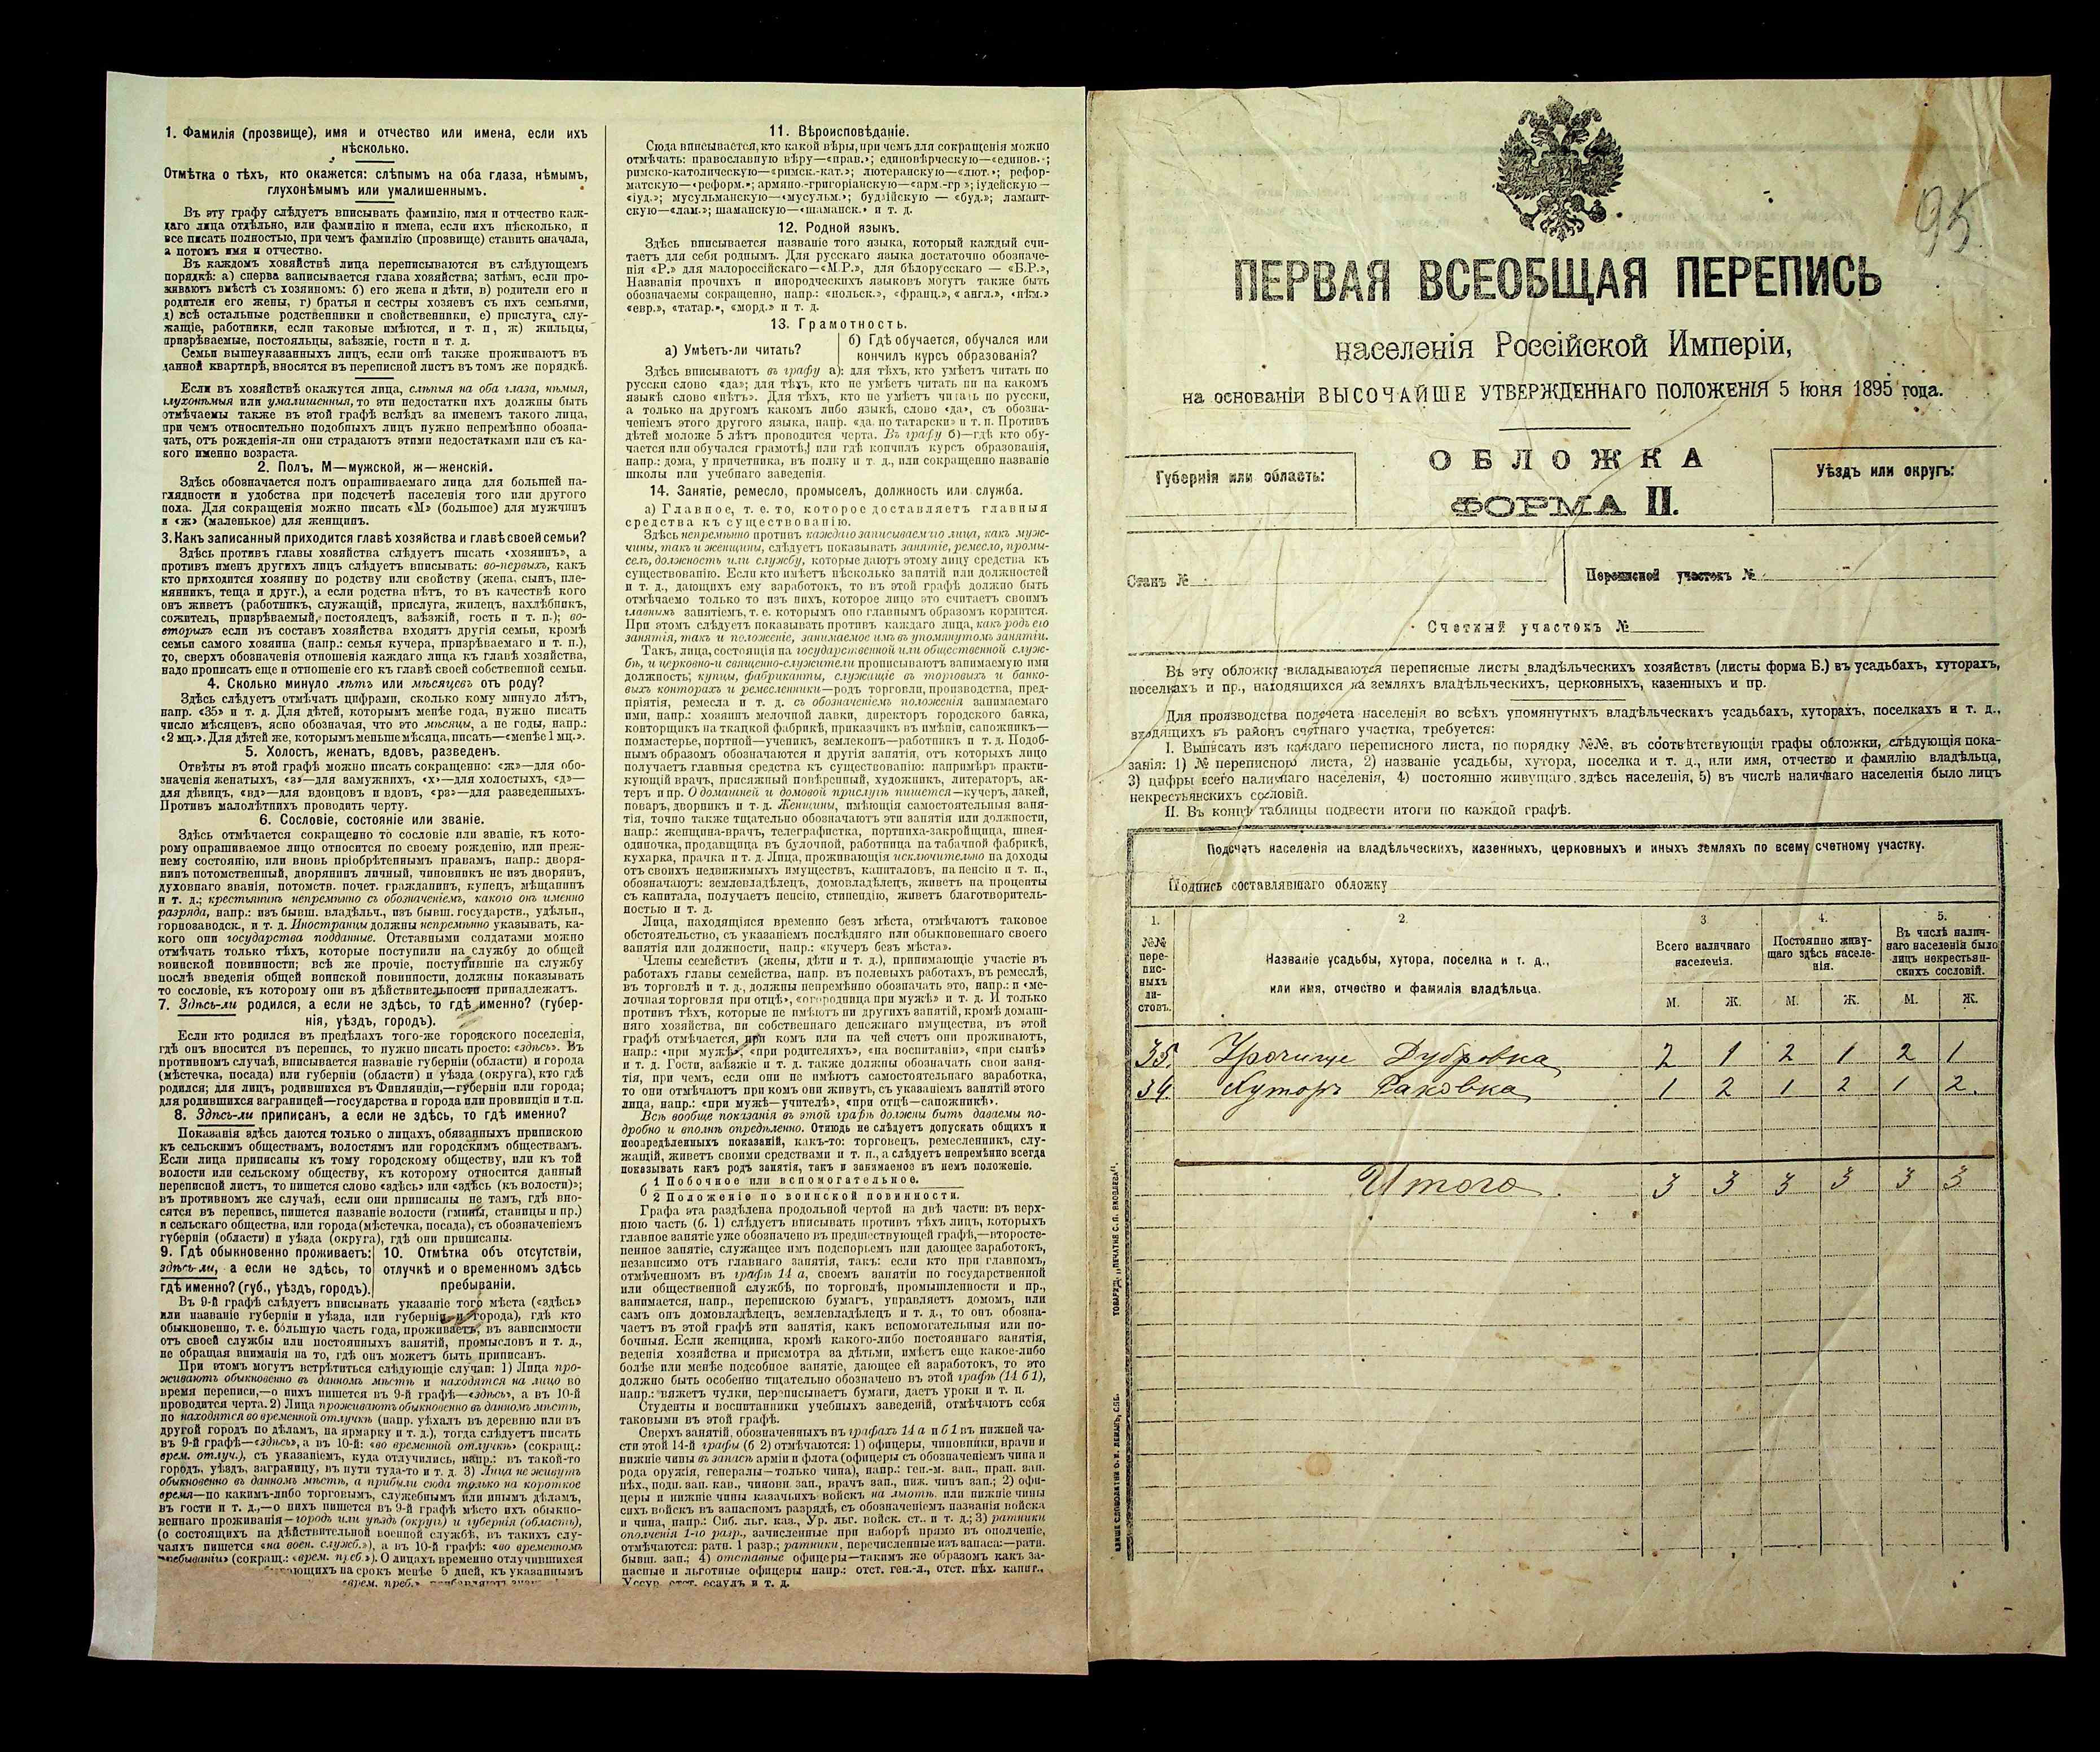 1. Фамилія (прозвище), имя и отчество или имена, если ихъ
нѣсколько.
Отмѣтка о тѣхъ, кто окажется: слѣпымъ на оба глаза, нѣмымъ,
глухонѣмымъ или умалишеннымъ.
Въ эту графу слѣдуетъ вписывать фамилію, имя и отчество каж-
даго лица отдѣльно, или фамилію и имена, если ихъ нѣсколько, и
все писать полностью, при чемъ фамилію (прозвище) ставить сначала,
а потомъ имя и отчество.
Въ каждомъ хозяйствѣ лица переписываются въ слѣдующемъ
порядкѣ: а) сперва записывается глава хозяйства; затѣмъ, если про-
живаютъ вмѣстѣ съ хозяиномъ: б) его жена и дѣти, в) родители его и
родители его жены, г) братья и сестры хозяевъ съ ихъ семьями,
д) всѣ остальные родственники и свойственники, е) прислуга, слу-
жащіе, работники, если таковые имѣются, и т. п, ж) жильцы,
призрѣваемые, постояльцы, заѣзжіе, гости и т. д.
Семьи вышеуказанныхъ лицъ, если онѣ также проживаютъ въ
данной квартирѣ, вносятся въ переписной листъ въ томъ же порядкѣ.
Если въ хозяйствѣ окажутся лица, слѣпыя на оба глаза, нѣмыя,
глухонѣмыя или умалишенныя, то эти недостатки ихъ должны быть
отмѣчаемы также въ этой графѣ вслѣдъ за именемъ такого лица,
при чемъ относительно подобныхъ лицъ нужно непремѣнно обозна-
чать, отъ рожденія-ли они страдаютъ этими недостатками или съ ка-
кого именно возраста.
2. Полъ. М—мужской, ж—женскій.
Здѣсь обозначается полъ опрашиваемаго лица для большей на-
глядности и удобства при подсчетѣ населенія того или другого
пола. Для сокращенія можно писать «М» (большое) для мужчинъ
и «ж» (маленькое) для женщинъ.
3. Какъ записанный приходится главѣ хозяйства и главѣ своей семьи?
Здѣсь противъ главы хозяйства слѣдуетъ писать «хозяинъ», а
противъ именъ другихъ лицъ слѣдуетъ вписывать: во-первыхъ, какъ
кто приходится хозяину по родству или свойству (жена, сынъ, пле-
мянникъ, теща и друг.), а если родства нѣтъ, то въ качествѣ кого
онъ живетъ (работникъ, служащій, прислуга, жилецъ, нахлѣбникъ,
сожитель, призрѣваемый, постоялецъ, заѣзжій, гость и т. п.); во-
вторыхъ если въ составъ хозяйства входятъ другія семьи, кромѣ
семьи самого хозяина (напр.: семья кучера, призрѣваемаго и т. п.),
то, сверхъ обозначенія отношенія каждаго лица къ главѣ хозяйства,
надо прописать еще и отношеніе его къ главѣ своей собственной семьи.
4. Сколько минуло лѣтъ или мѣсяцевъ отъ роду?
Здѣсь слѣдуетъ отмѣчать цифрами, сколько кому минуло лѣтъ,
напр. «35» и т. д. Для дѣтей, которымъ менѣе года, нужно писать
число мѣсяцевъ, ясно обозначая, что это мѣсяцы, а не годы, напр.:
«2 мц.». Для дѣтей же, которымъ меньше мѣсяца, писать—«менѣе 1 мц.».
5. Холостъ, женатъ, вдовъ, разведенъ.
Отвѣты въ этой графѣ можно писать сокращенно: «ж»—для обо-
значенія женатыхъ, «з»—для замужнихъ, «х»—для холостыхъ, «д»—
для дѣвицъ, «вд»—для вдовцовъ и вдовъ, «рз»—для разведенныхъ.
Противъ малолѣтнихъ проводить черту.
6. Сословіе, состояніе или званіе.
Здѣсь отмѣчается сокращенно то сословіе или званіе, къ кото-
рому опрашиваемое лицо относится по своему рожденію, или преж-
нему состоянію, или вновь пріобрѣтеннымъ правамъ, напр.: дворя-
нинъ потомственный, дворянинъ личный, чиновникъ не изъ дворянъ,
духовнаго званія, потомств. почет. гражданинъ, купецъ, мѣщанинъ
и т. д.; крестьянинъ непремѣнно съ обозначеніемъ, какого онъ именно
разряда, напр.: изъ бывш. владѣльч., изъ бывш. государств., удѣльн.,
горнозаводск., и т. д. Иностранцы должны непремѣнно указывать, ка-
кого они государства подданные. Отставными солдатами можно
отмѣчать только тѣхъ, которые поступили на службу до общей
воинской повинности; всѣ же прочіе, поступившіе на службу
послѣ введенія общей воинской повинности, должны показывать
то сословіе, къ которому они въ дѣйствительности принадлежатъ.
7. Здѣсь-ли родился, а если не здѣсь, то гдѣ именно? (губер-
нія, уѣздъ, городъ).
Если кто родился въ предѣлахъ того-же городского поселенія,
гдѣ онъ вносится въ перепись, то нужно писать просто: «здѣсь». Въ
противномъ случаѣ, вписывается названіе губерніи (области) и города
(мѣстечка, посада) или губерніи (области) и уѣзда (округа), кто гдѣ
родился; для лицъ, родившихся въ Финляндіи,—губерніи или города;
для родившихся заграницей—государства и города или провинціи и т.п.
8. Здѣсь-ли приписанъ, а если не здѣсь, то гдѣ именно?
Показанія здѣсь даются только о лицахъ, обязанныхъ припискою
къ сельскимъ обществамъ, волостямъ или городскимъ обществамъ.
Если лица приписаны къ тому городскому обществу, или къ той
волости или сельскому обществу, къ которому относится данный
переписной листъ, то пишется слово «здѣсь» или «здѣсь (къ волости)»;
въ противномъ же случаѣ, если они приписаны не тамъ, гдѣ вно-
сятся въ перепись, пишется названіе волости (гмины, станицы и пр.)
и сельскаго общества, или города (мѣстечка, посада), съ обозначеніемъ
губерніи (области) и уѣзда (округа), гдѣ они приписаны.
9. Гдѣ обыкновенно проживаетъ:
здѣсь-ли, а если не здѣсь, то
гдѣ именно? (губ., уѣздъ, городъ).
10. Отмѣтка объ отсутствіи,
отлучкѣ и о временномъ здѣсь
пребываніи.
Въ 9-й графѣ слѣдуетъ вписывать указаніе того мѣста («здѣсь»
или названіе губерніи и уѣзда, или губерніи и города), гдѣ кто
обыкновенно, т. е. бо́льшую часть года, проживаетъ, въ зависимости
отъ своей службы или постоянныхъ занятій, промысловъ и т. д.,
не обращая вниманія на то, гдѣ онъ можетъ быть приписанъ.
При этомъ могутъ встрѣтиться слѣдующіе случаи: 1) Лица про-
живаютъ обыкновенно въ данномъ мѣстѣ и находятся на лицо во
время переписи,—о нихъ пишется въ 9-й графѣ—«здѣсь», а въ 10-й
проводится черта. 2) Лица проживаютъ обыкновенно въ данномъ мѣстѣ,
но находятся во временной отлучкѣ (напр. уѣхалъ въ деревню или въ
другой городъ по дѣламъ, на ярмарку и т. д.), тогда слѣдуетъ писать
въ 9-й графѣ—«здѣсь», а въ 10-й: «во временной отлучкѣ» (сокращ.:
врем. отлуч.), съ указаніемъ, куда отлучились, напр.: въ такой-то
городъ, уѣздъ, заграницу, въ пути туда-то и т. д. 3) Лица не живутъ
обыкновенно въ данномъ мѣстѣ, а прибыли сюда только на короткое
время—по какимъ-либо торговымъ, служебнымъ или инымъ дѣламъ,
въ гости и т. д.,—о нихъ пишется въ 9-й графѣ мѣсто ихъ обыкно-
веннаго проживанія—городъ или уѣздъ (округъ) и губернія (область),
(о состоящихъ на дѣйствительной военной службѣ, въ такихъ слу-
чаяхъ пишется «на воен. служб.»), а въ 10-й графѣ: «во временномъ
пребываніи» (сокращ.: «врем. преб.»). О лицахъ временно отлучившихся
на срокъ менѣе 5 дней, къ указаннымъ
«врем. преб.»
11. Вѣроисповѣданіе.
Сюда вписывается, кто какой вѣры, при чемъ для сокращенія можно
отмѣчать: православную вѣру—«прав.»; единовѣрческую—«единов.»;
римско-католическую—«римск.-кат.»; лютеранскую—«лют.»; рефор-
матскую—«реформ.»; армяно.-григоріанскую—«арм.-гр »; іудейскую —
«іуд.»; мусульманскую—«мусульм.»; буддійскую — «буд.»; ламаит-
скую—«лам.»; шаманскую—«шаманск.» и т. д.
12. Родной языкъ.
Здѣсь вписывается названіе того языка, который каждый счи-
таетъ для себя роднымъ. Для русскаго языка достаточно обозначе-
нія «Р.» для малороссійскаго—«М.Р.», для бѣлорусскаго — «Б.Р.»,
Названія прочихъ и инородческихъ языковъ могутъ также быть
обозначаемы сокращенно, напр.: «польск.», «франц.», « англ.», «нѣм.»
«евр.», «татар.», «морд.» и т. д.
13. Грамотность.
а) Умѣетъ-ли читать?
б) Гдѣ обучается, обучался или
кончилъ курсъ образованія?
Здѣсь вписываютъ въ графу а): для тѣхъ, кто умѣетъ читать по
русски слово «да»; для тѣхъ, кто не умѣетъ читать ни на какомъ
языкѣ слово «нѣтъ». Для тѣхъ, кто не умѣетъ читать по русски,
а только на другомъ какомъ либо языкѣ, слово «да», съ обозна-
ченіемъ этого другого языка, напр. «да. по татарски» и т. п. Противъ
дѣтей моложе 5 лѣтъ проводится черта. Въ графу б)—гдѣ кто обу-
чается или обучался грамотѣ, или гдѣ кончилъ курсъ образованія,
напр.: дома, у причетника, въ полку и т. д., или сокращенно названіе
школы или учебнаго заведенія.
14. Занятіе, ремесло, промыселъ, должность или служба.
а) Главное, т. е. то, которое доставляетъ главныя
средства къ существованію.
Здѣсь непремѣнно противъ каждаго записываемаго лица, какъ муж-
чины, такъ и женщины, слѣдуетъ показывать занятіе, ремесло, промы-
селъ, должность или службу, которые даютъ этому лицу средства къ
существованію. Если кто имѣетъ нѣсколько занятій или должностей
и т. д., дающихъ ему заработокъ, то въ этой графѣ должно быть
отмѣчаемо только то изъ нихъ, которое лицо это считаетъ своимъ
главнымъ занятіемъ, т. е. которымъ оно главнымъ образомъ кормится.
При этомъ слѣдуетъ показывать противъ каждаго лица, какъ родъ его
занятія, такъ и положеніе, занимаемое имъ въ упомянутомъ занятіи.
Такъ, лица, состоящія на государственной или общественной служ-
бѣ, и церковно-и священно-служители прописываютъ занимаемую ими
должность; купцы, фабриканты, служащіе въ торговыхъ и банко-
выхъ конторахъ и ремесленники—родъ торговли, производства, пред-
пріятія, ремесла и т. д. съ обозначеніемъ положенія занимаемаго
ими, напр.: хозяинъ мелочной лавки, директоръ городского банка,
конторщикъ на ткацкой фабрикѣ, приказчикъ въ имѣніи, сапожникъ—
подмастерье, портной—ученикъ, землекопъ—работникъ и т. д. Подоб-
нымъ образомъ обозначаются и другія занятія, отъ которыхъ лицо
получаетъ главныя средства къ существованію: напримѣръ практи-
кующій врачъ, присяжный повѣренный, художникъ, литераторъ, ак-
теръ и пр. О домашней и домовой прислугѣ пишется—кучеръ, лакей,
поваръ, дворникъ и т. д. Женщины, имѣющія самостоятельныя заня-
тія, точно также тщательно обозначаютъ эти занятія или должности,
напр.: женщина-врачъ, телеграфистка, портниха-закройщица, швея-
одиночка, продавщица въ булочной, работница на табачной фабрикѣ,
кухарка, прачка и т. д. Лица, проживающія исключительно на доходы
отъ своихъ недвижимыхъ имуществъ, капиталовъ, на пенсію и т. п.,
обозначаютъ: землевладѣлецъ, домовладѣлецъ, живетъ на проценты
съ капитала, получаетъ пенсію, стипендію, живетъ благотворитель-
ностью и т. д.
Лица, находящіяся временно безъ мѣста, отмѣчаютъ таковое
обстоятельство, съ указаніемъ послѣдняго или обыкновеннаго своего
занятія или должности, напр.: «кучеръ безъ мѣста».
Члены семействъ (жены, дѣти и т. д.), принимающіе участіе въ
работахъ главы семейства, напр. въ полевыхъ работахъ, въ ремеслѣ,
въ торговлѣ и т. д., должны непремѣнно обозначать это, напр.: и «ме-
лочная торговля при отцѣ», «огородница при мужѣ» и т. д. И только
противъ тѣхъ, которые не имѣютъ ни другихъ занятій, кромѣ домаш-
няго хозяйства, ни собственнаго денежнаго имущества, въ этой
графѣ отмѣчается, при комъ или на чей счетъ они проживаютъ,
напр.: «при мужѣ», «при родителяхъ», «на воспитаніи», «при сынѣ»
и т. д. Гости, заѣзжіе и т. д. также должны обозначать свои заня-
тія, при чемъ, если они не имѣютъ самостоятельнаго заработка,
то они отмѣчаютъ при комъ они живутъ, съ указаніемъ занятій этого
лица, напр.: «при мужѣ—учителѣ», «при отцѣ—сапожникѣ».
Всѣ вообще показанія въ этой графѣ должны быть даваемы по-
дробно и вполнѣ опредѣленно. Отнюдь не слѣдуетъ допускать общихъ и
неопредѣленныхъ показаній, какъ-то: торговецъ, ремесленникъ, слу-
жащій, живетъ своими средствами и т. п., а слѣдуетъ непремѣнно всегда
показывать какъ родъ занятія, такъ и занимаемое въ немъ положеніе.
б 1 Побочное или вспомогательное.
2 Положеніе по воинской повинности.
Графа эта раздѣлена продольной чертой на двѣ части: въ верх-
нюю часть (б. 1) слѣдуетъ вписывать противъ тѣхъ лицъ, которыхъ
главное занятіе уже обозначено въ предшествующей графѣ,—второсте-
пенное занятіе, служащее имъ подспорьемъ или дающее заработокъ,
независимо отъ главнаго занятія, такъ: если кто при главномъ,
отмѣченномъ въ графѣ 14 а, своемъ занятіи по государственной
или общественной службѣ, по торговлѣ, промышленности и пр.,
занимается, напр., перепискою бумагъ, управляетъ домомъ, или
самъ онъ домовладѣлецъ, землевладѣлецъ и т. д., то онъ обозна-
чаетъ въ этой графѣ эти занятія, какъ вспомогательныя или по-
бочныя. Если женщина, кромѣ какого-либо постояннаго занятія,
веденія хозяйства и присмотра за дѣтьми, имѣетъ еще какое-либо
болѣе или менѣе подсобное занятіе, дающее ей заработокъ, то это
должно быть особенно тщательно обозначено въ этой графѣ (14 б 1),
напр.: вяжетъ чулки, переписываетъ бумаги, даетъ уроки и т. п.
Студенты и воспитанники учебныхъ заведеній, отмѣчаютъ себя
таковыми въ этой графѣ.
Сверхъ занятій, обозначенныхъ въ графахъ 14 а и б 1 въ нижней ча-
сти этой 14-й графы (б 2) отмѣчаются: 1) офицеры, чиновники, врачи и
нижніе чины въ запасѣ арміи и флота (офицеры съ обозначеніемъ чина и
рода оружія, генералы—только чина), напр.: ген.-м. зап., прап. зап.
пѣх., подп. зап. кав., чиновн. зап., врачъ зап., ниж. чинъ зап.; 2) офи-
церы и нижніе чины казачьихъ войскъ на льготѣ. или нижніе чины
сихъ войскъ въ запасномъ разрядѣ, съ обозначеніемъ названія войска
и чина, напр.: Сиб. льг. каз., Ур. льг. войск. ст., и т. д.; 3) ратники
ополченія 1-го разр., зачисленные при наборѣ прямо въ ополченіе,
отмѣчаются: ратн. 1 разр.; ратники, перечисленные изъ запаса:—ратн.
бывш. зап.; 4) отставные офицеры—такимъ же образомъ какъ за-
пасные и льготные офицеры напр.: отст. ген.-л., отст. пѣх. капит.,
Уссур. отст. есаулъ и т. д.
95
ПЕРВАЯ ВСЕОБЩАЯ ПЕРЕПИСЬ
населенія Россійской Имперіи,
на основаніи ВЫСОЧАЙШЕ УТВЕРЖДЕННАГО ПОЛОЖЕНІЯ 5 Іюня 1895 года.
Губернія или область:
ОБЛОЖКА
ФОРМА II.
Уѣздъ или округъ:
Станъ №
Переписной участокъ №
Счетный участокъ №
Въ эту обложку вкладываются переписные листы владѣльческихъ хозяйствъ (листы форма Б.) въ усадьбахъ, хуторахъ,
поселкахъ и пр., находящихся на земляхъ владѣльческихъ, церковныхъ, казенныхъ и пр.
Для производства подсчета населенія во всѣхъ упомянутыхъ владѣльческихъ усадьбахъ, хуторахъ, поселкахъ и т. д.,
входящихъ въ районъ счетнаго участка, требуется:
I. Выписать изъ каждаго переписного листа, по порядку №№, въ соотвѣтствующія графы обложки, слѣдующія пока-
занія: 1) № переписного листа, 2) названіе усадьбы, хутора, поселка и т. д., или имя, отчество и фамилію владѣльца,
3) цифры всего наличнаго населенія, 4) постоянно живущаго здѣсь населенія, 5) въ числѣ наличнаго населенія было лицъ
некрестьянскихъ сословій.
II. Въ концѣ таблицы подвести итоги по каждой графѣ.
Подсчетъ населенія на владѣльческихъ, казенныхъ, церковныхъ и иныхъ земляхъ по всему счетному участку.
Подпись составлявшаго обложку
1. 2. 3. 4. 5.
№№ пере-
пис-
ныхъ
ли-
стовъ.
Названіе усадьбы, хутора, поселка и т. д.,
или имя, отчество и фамилія владѣльца.
Всего наличнаго
населенія.
Постоянно живу-
щаго здѣсь населе-
нія.
Въ числѣ налич-
наго населенія было
лицъ некрестьян-
скихъ сословій.
М. Ж. М. Ж. М. Ж.
35. Урочище Дубровка 2 1 2 1 2 1
34. Хуторъ Раковка 1 2 1 2 1 2.
Итого 3 3 3 3 3 3